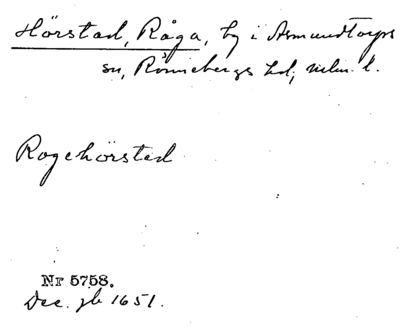 Hörstad, Råga, by i Asmundtorps
sn, Rönnebergs hd, Malm. l.
Rogehörsted
Nr 5758.
Dec. jb 1651.